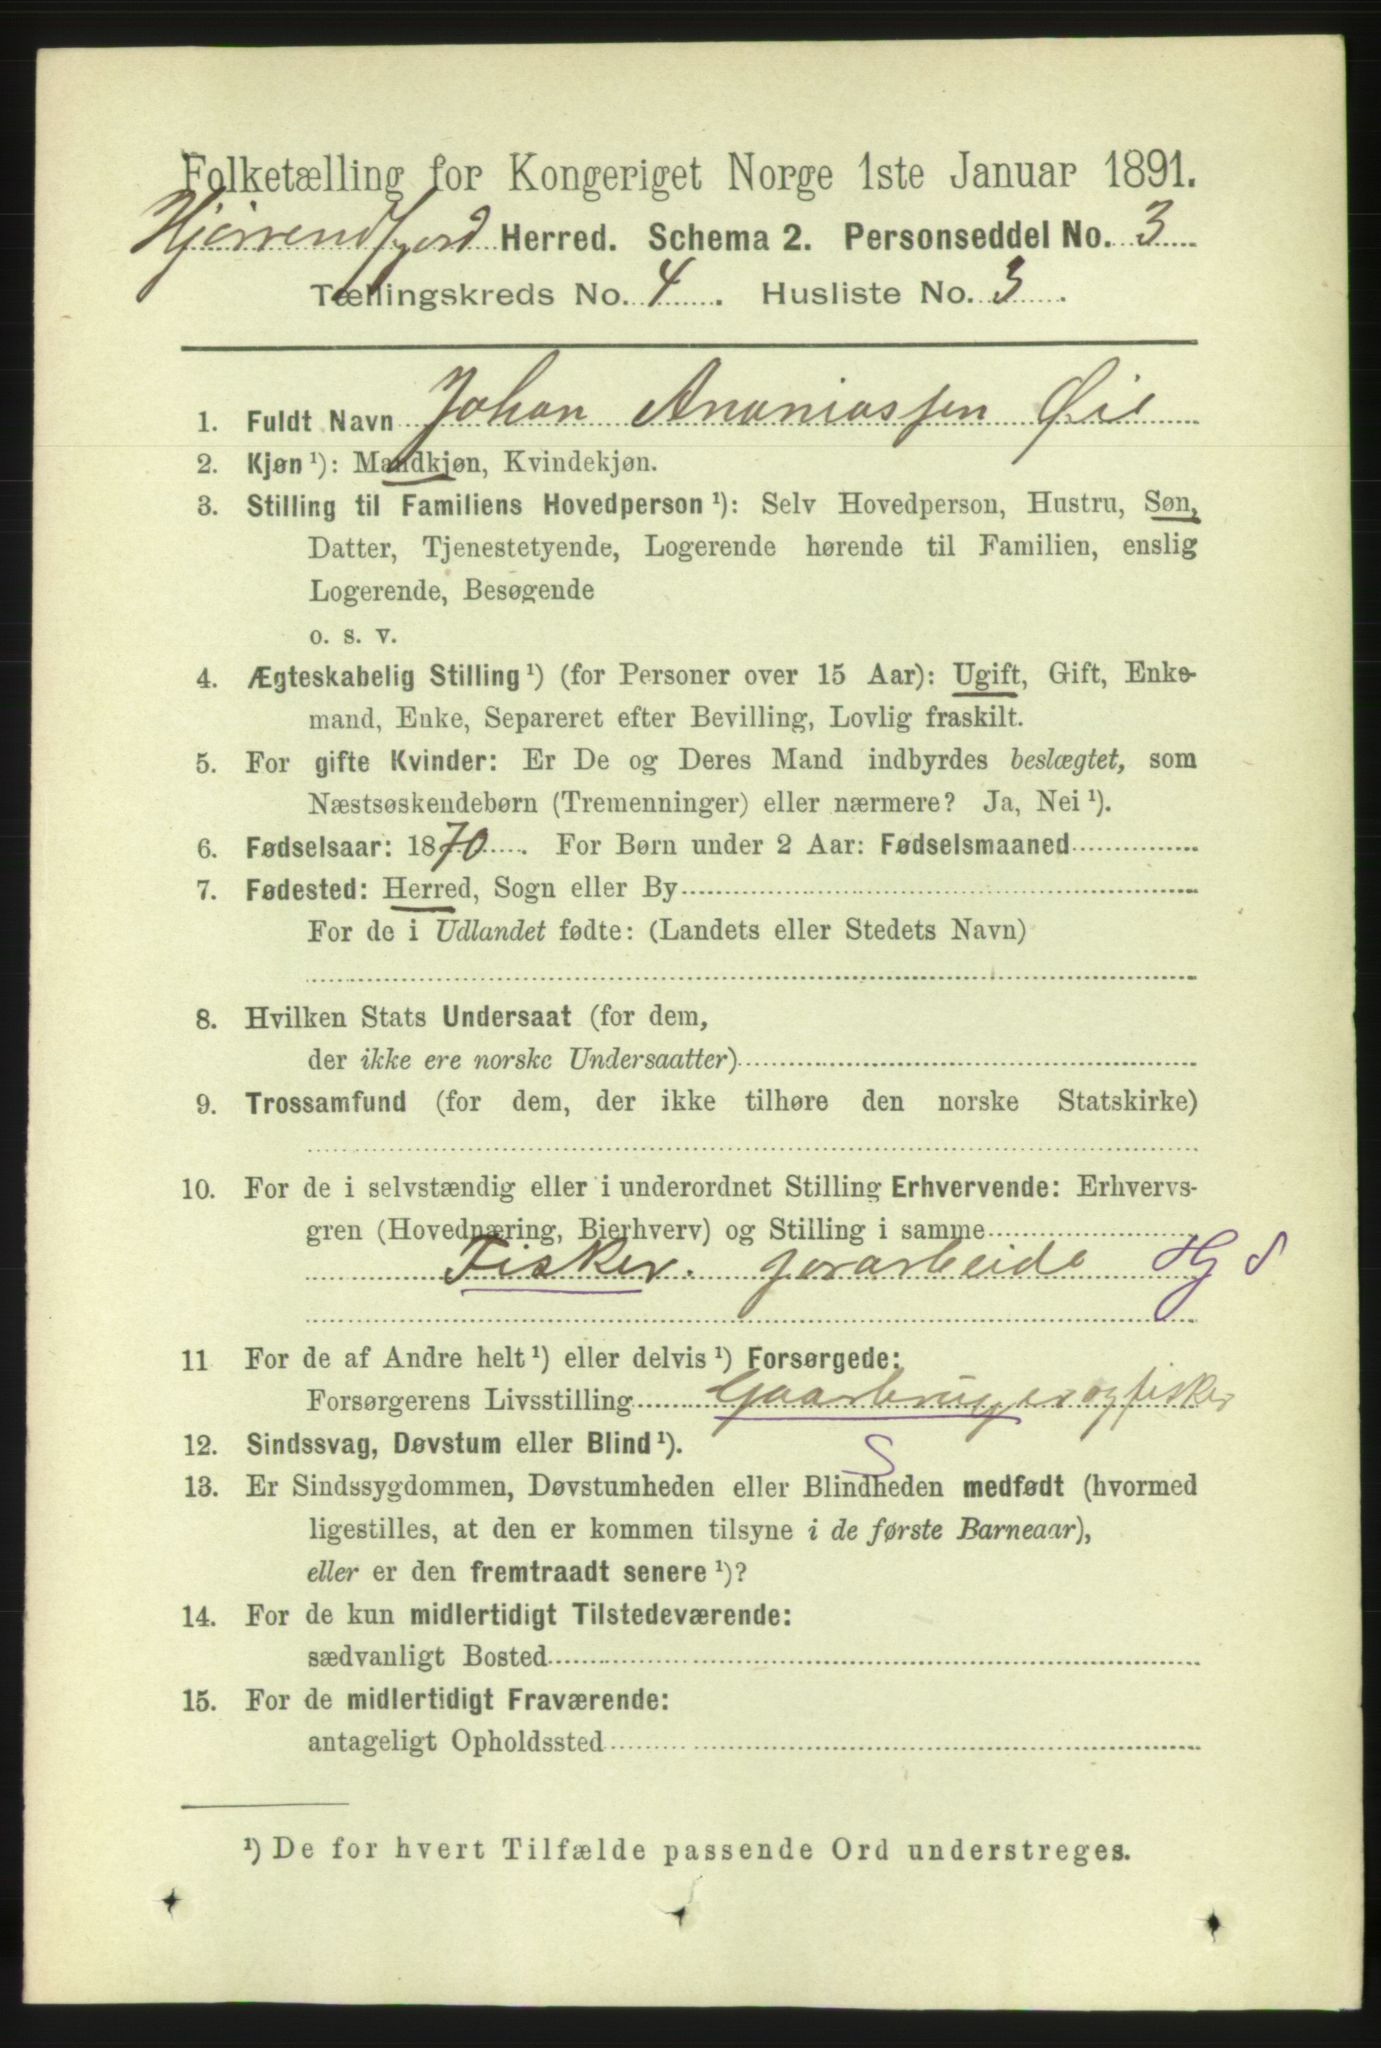 Folketælling for Kongeriget Norge 1ste Januar 1891.
Hjørrendfjord Herred. Schema 2. Personseddel No. 3
Tællingskreds No. 4. Husliste No. 3.
1. Fuldt Navn Johan Ananiassen Øie
2. Kjøn ¹): Mandkjøn, Kvindekjøn.
3. Stilling til Familiens Hovedperson ¹): Selv Hovedperson, Hustru, Søn,
Datter, Tjenestetyende, Logerende hørende til Familien, enslig
Logerende, Besøgende
o. s. v.
4. Ægteskabelig Stilling ¹) (for Personer over 15 Aar): Ugift, Gift, Enke-
mand, Enke, Separeret efter Bevilling, Lovlig fraskilt.
5. For gifte Kvinder: Er De og Deres Mand indbyrdes beslægtet, som
Næstsøskendebørn (Tremenninger) eller nærmere? Ja, Nei ¹).
6. Fødselsaar: 1870. For Børn under 2 Aar: Fødselsmaaned
7. Fødested: Herred, Sogn eller By
For de i Udlandet fødte: (Landets eller Stedets Navn)
8. Hvilken Stats Undersaat (for dem,
der ikke ere norske Undersaatter)
9. Trossamfund (for dem, der ikke tilhøre den norske Statskirke)
10. For de i selvstændig eller i underordnet Stilling Erhvervende: Erhvervs-
gren (Hovednæring, Bierhverv) og Stilling i samme
Fisker. jorarbeide Hj S
11 For de af Andre helt ¹) eller delvis ¹) Forsørgede:
Forsørgerens Livsstilling Gaarbruger og fisker
12. Sindssvag, Døvstum eller Blind ¹). S
13. Er Sindssygdommen, Døvstumheden eller Blindheden medfødt (hvormed
ligestilles, at den er kommen tilsyne i de første Barneaar),
eller er den fremtraadt senere ¹)?
14. For de kun midlertidigt Tilstedeværende:
sædvanligt Bosted
15. For de midlertidigt Fraværende:
antageligt Opholdssted
¹) De for hvert Tilfælde passende Ord understreges.